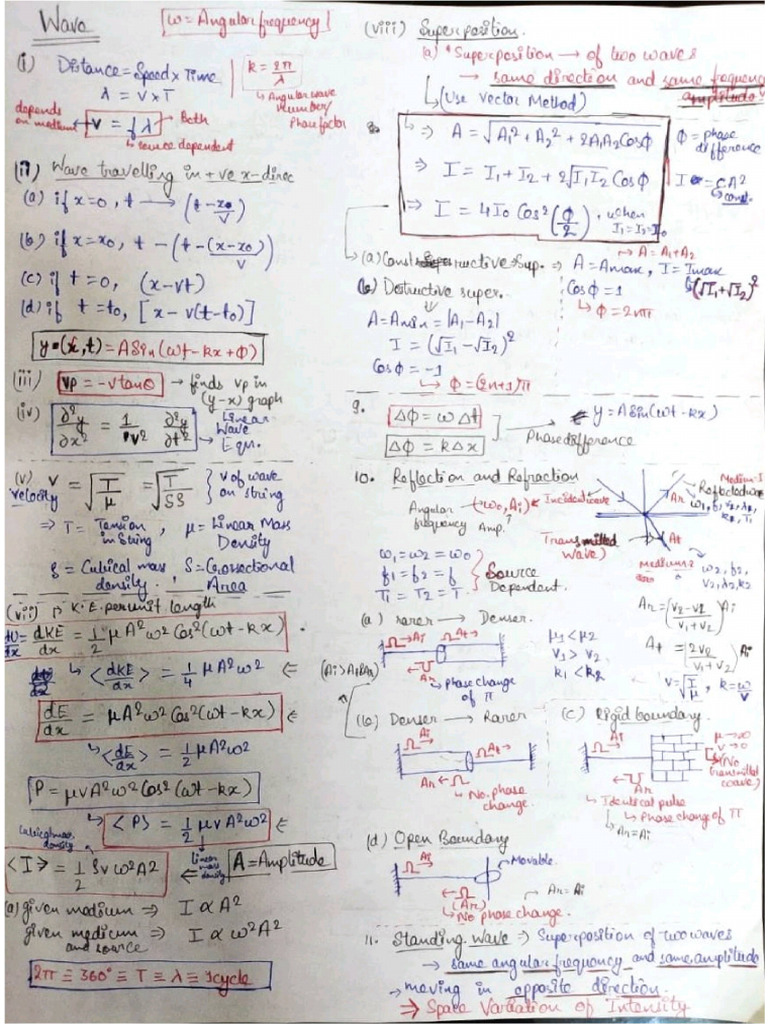 Wave
ω = Angular frequency
(i) Distance = Speed × Time
λ = V × T
k = 2π/λ
↳ Angular wave number/ Phase factor
depends on medium ← v = fλ → Both
↳ source dependent
(ii) Wave travelling in +ve x-direc
(a) if x=0, t → (t - x0/v)
(b) if x=x0, t - (t - (x-x0)/v)
(c) if t=0, (x-vt)
(d) if t=t0, [x - v(t-t0)]
y=(x,t) = A Sin(ωt - kx + Φ)
(iii) Vp = -v tanθ → finds Vp in (y-x) graph
(iv) ∂²y/∂x² = 1/v² ∂²y/∂t² → Linear Wave Eqn.
(v) V = √(T/μ) = √(T/SS) } v of wave on string
Velocity
⇒ T = Tension in string, μ = Linear Mass Density
ρ = Cubical mass density, S = Crossectional Area
(vii) K.E. per unit length
dU/dx = dKE/dx = 1/2 μA²ω² Cos²(ωt - kx)
↳ <dKE/dx> = 1/4 μA²ω² ⇐
dE/dx = μA²ω² Cos²(ωt - kx) ⇐
↳ <dE/dx> = 1/2 μA²ω²
P = μvA²ω² Cos²(ωt - kx)
↳ <P> = 1/2 μvA²ω² ⇐
Cubical mass density
linear mass density
<I> = 1/2 ρvω²A² ⇐
A = Amplitude
(a) given medium ⇒ I ∝ A²
given medium and source ⇒ I ∝ ω²A²
2π ≡ 360° ≡ T ≡ λ ≡ 1cycle
(viii) Superposition.
(a) * Superposition → of two waves
→ same direction and same frequency
amplitude
↳ (Use Vector Method)
8.
⇒ A = √(A1² + A2² + 2A1A2 Cosφ)
⇒ I = I1 + I2 + 2√(I1 I2) Cosφ
⇒ I = 4I0 Cos²(φ/2), when I1=I2=I0
φ = phase difference
I = CA²
↳ const.
↳ A = A1 + A2
(a) Constructive Sup. ⇒ A = Amax, I = Imax
Cosφ = 1
(√I1+√I2)²
↳ φ = 2nπ
(b) Destructive super.
A = Amin = |A1 - A2|
I = (√I1 - √I2)²
Cosφ = -1
↳ φ = (2n+1)π
9. ΔΦ = ωΔt
ΔΦ = kΔx
y = A sin(ωt - kx)
Phase difference
10. Reflection and Refraction
Angular frequency (ω0, Ai) Incident wave
Amp.
Medium-I
Ar Reflected wave
ω1, f1, v1, λ1, k1, T1
Transmitted wave)
At
Medium-2
ω2, f2, v2, λ2, k2
ω1 = ω2 = ω0
f1 = f2 = f
T1 = T2 = T
Source Dependent.
Ar = (v2 - v1 / v1 + v2) Ai
At = (2v2 / v1 + v2) Ai
v = √(T/μ), k = ω/v
(a) rarer → Denser.
Ai At
Ar ↳ phase change of π
μ1 < μ2
v1 > v2
k1 < k2
(b) Denser → Rarer
Ai At
Ar
↳ No. phase change.
(c) Rigid boundary.
Ai
Ar
μ → ∞
v → 0
(No transmitted wave)
↳ Identical pulse
↳ Phase change of π
↳ Ar = Ai
(d) Open Boundary
Ai
Movable.
(Ar)
→ Ar = Ai
↳ No phase change.
11. Standing Wave → Superposition of two waves
→ same angular frequency and same amplitude
→ moving in opposite direction.
⇒ Space Variation of Intensity